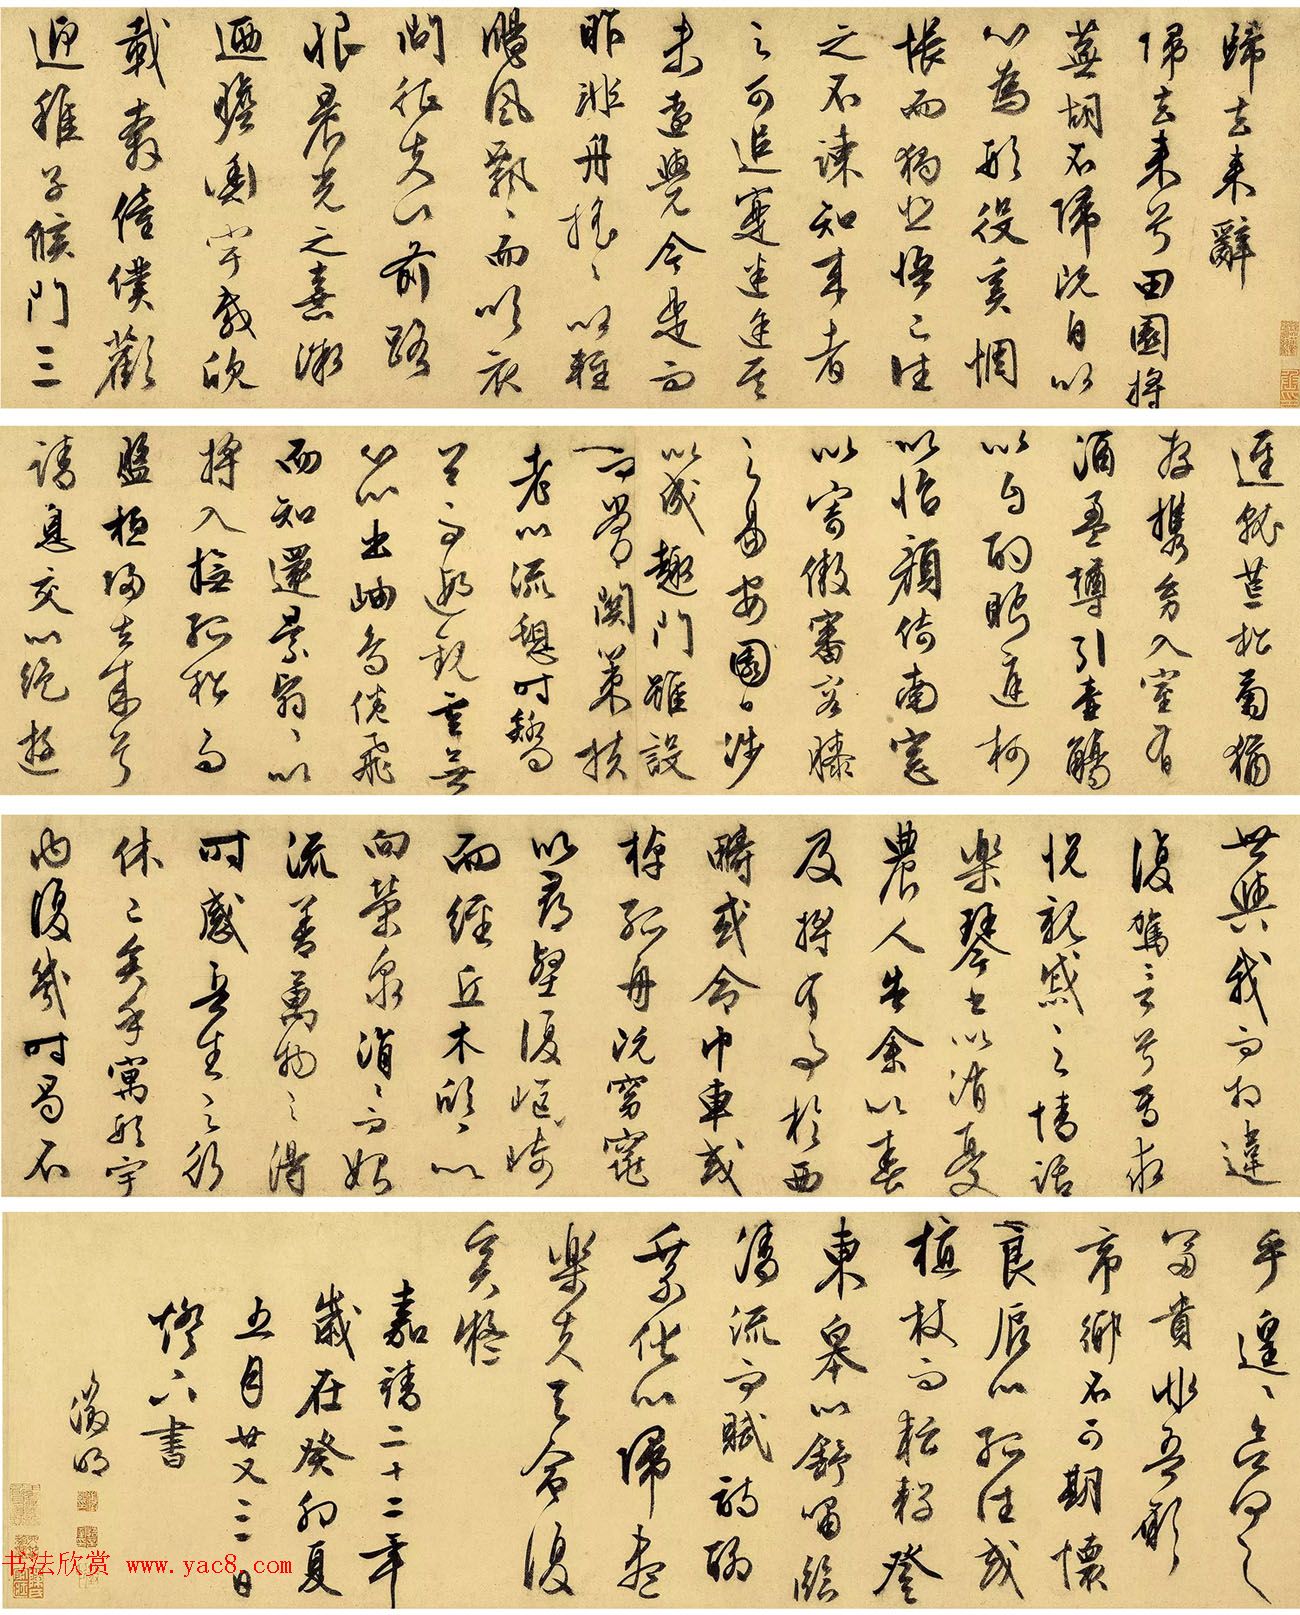 歸去來辭
歸去來兮田園將
蕪胡不歸既自以
心為形役奚惆
悵而獨悲悟已往
之不諫知來者
之可追寔迷途其
未遠覺今是而
昨非舟搖〻以輕
颺風飄〻而吹衣
問征夫以前路
恨晨光之熹微
迺瞻衡宇載欣
載奔僮僕歡
迎稚子候門三
逕就荒松菊猶
存攜幼入室有
酒盈樽引壺觴
以自酌眄庭柯
以怡顏倚南窗
以寄傲審容膝
之易安園日涉
以成趣門雖設
而常關策扶
老以流憩時矯
首而遐觀雲無
心以出岫鳥倦飛
而知還景翳〻以
將入撫孤松而
盤桓歸去來兮
請息交以絕遊
世與我而相違
復駕言兮焉求
悅親戚之情話
樂琴書以消憂
農人告余以春
及將有事於西
疇或命巾車或
棹孤舟既窈窕
以尋壑復嶇崎
而經丘木欣〻以
向榮泉涓〻而始
流善萬物之得
時感吾生之行
休已矣乎寓形宇
內復幾時曷不
乎遑〻欲何之
富貴非吾願
帝鄉不可期懷
良辰以孤往或
植杖而耘耔登
東皋以舒嘯臨
清流而賦詩聊
乘化以歸盡
樂夫天命復
奚疑
嘉靖二十二年
歲在癸卯夏
五月廿又三日
燈下書
徵明
书法欣赏 www.yac8.com